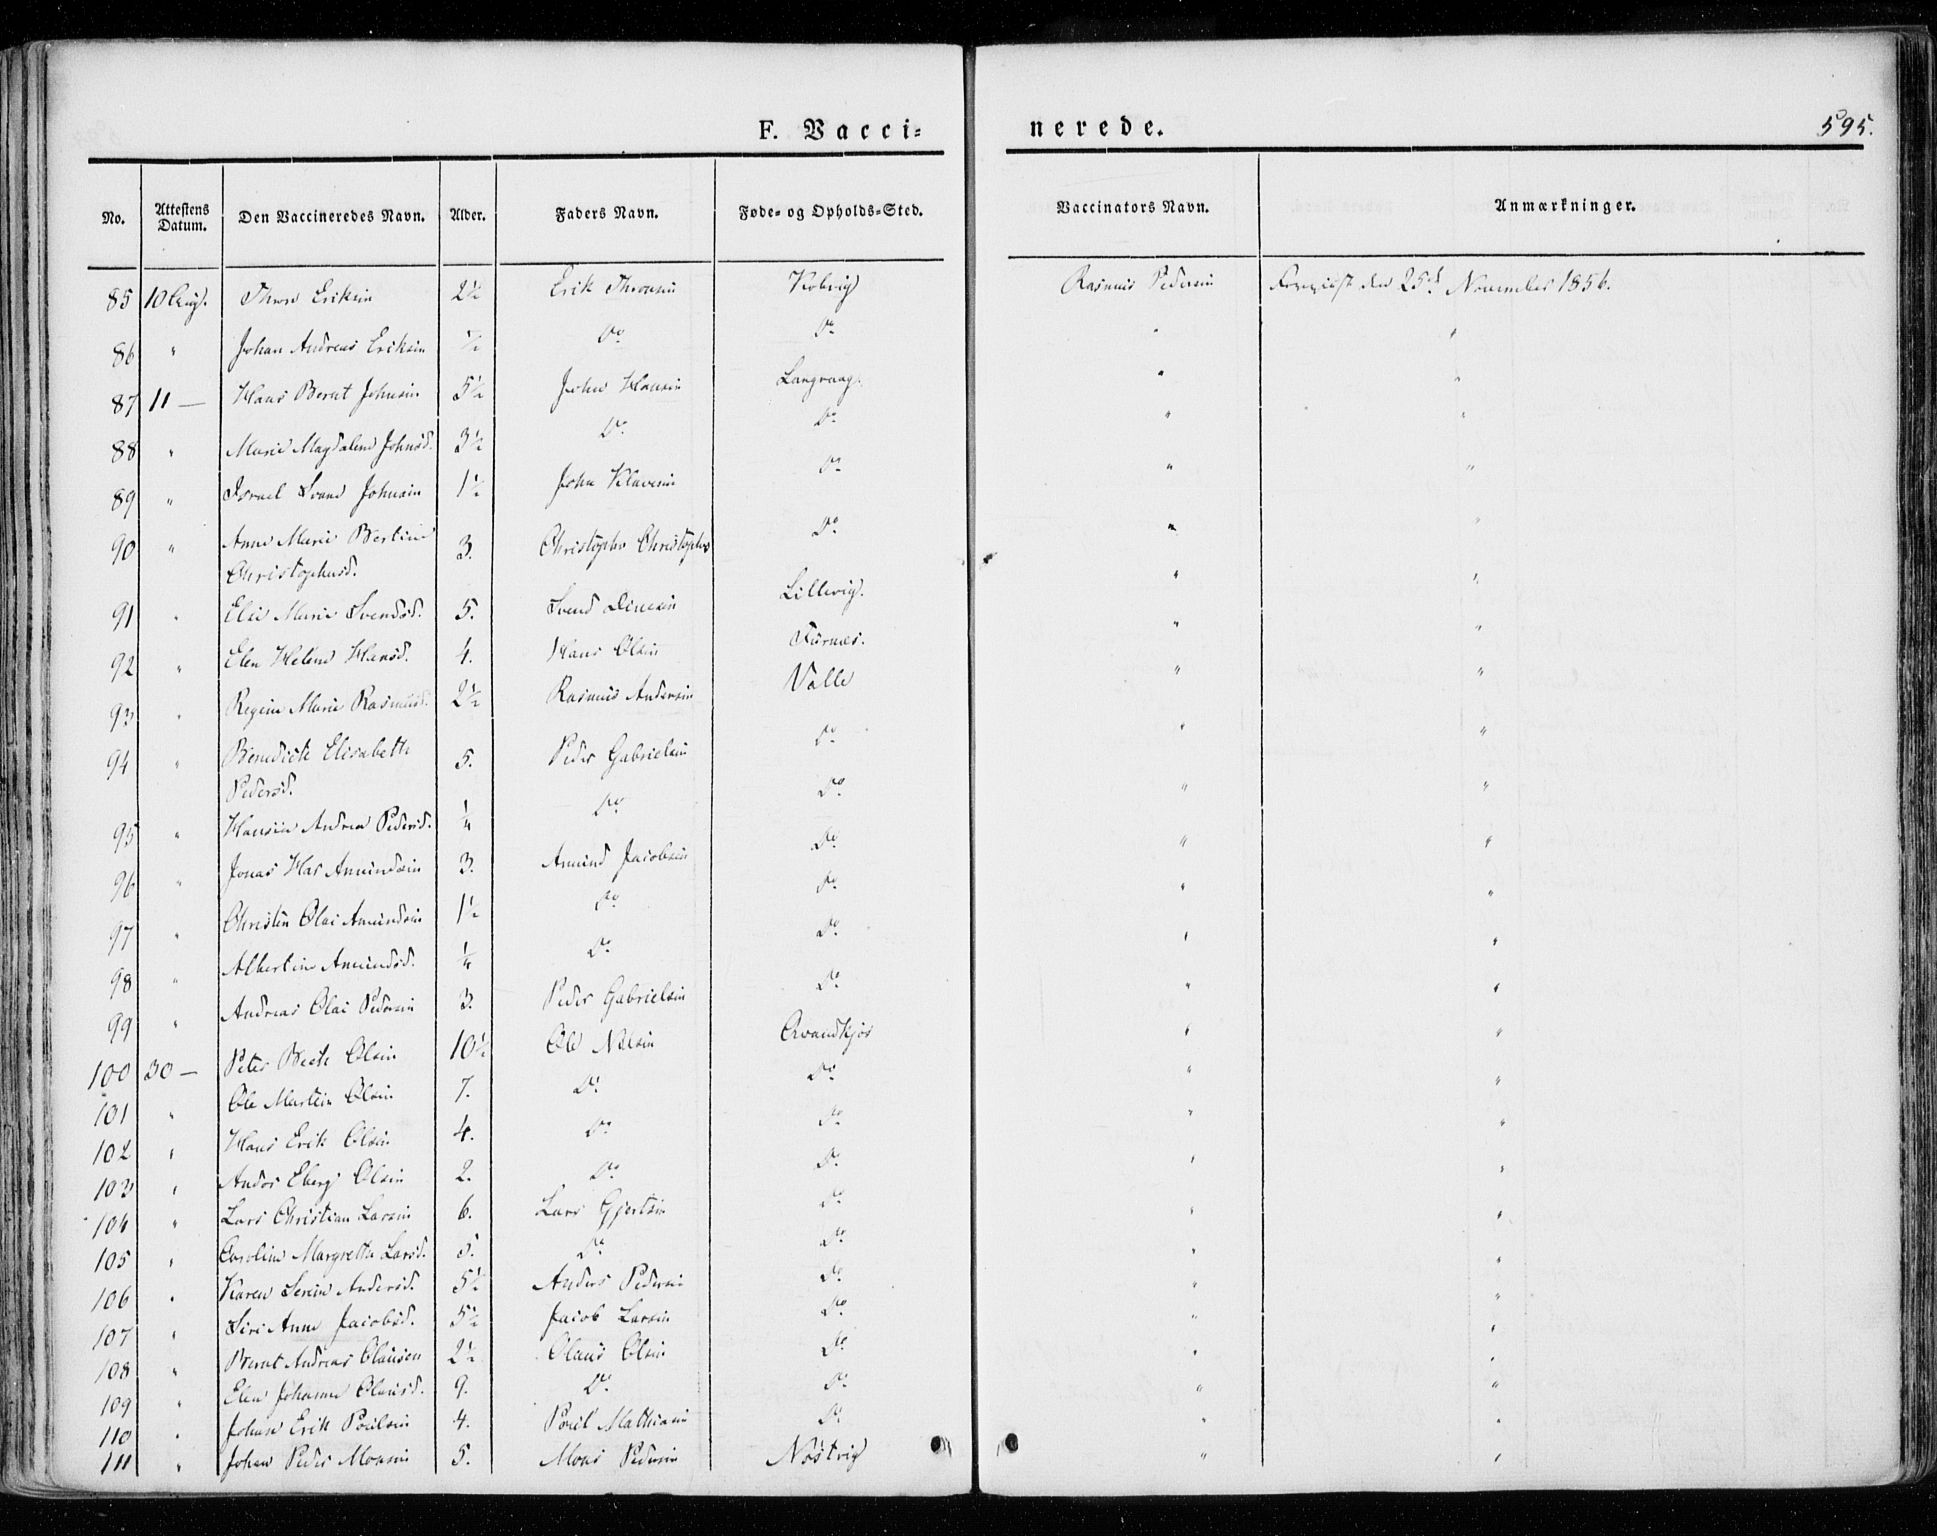 F. Vacci=
nerede.
595.
No. Attestens Datum. Den Vaccineredes Navn. Alder. Faders Navn. Føde- og Opholds-Sted. Vaccinators Navn. Anmærkninger.
85 10 Aug. Thron Eriksen 2½ Erik Thronsen Kobvig Rasmus Pedersen den 25d November 1856.
86 " Johan Andreas Eriksen ½ Do Do " "
87 11 — Hans Bernt Johnsen 5½ John Hansen Langvaag. " "
88 " Marie Magdalene Johnsd. 3½ Do Do " "
89 " Israel Johnsen 1½ John Klavesen Do " "
90 " Anne Marie Bertine 3. Christopher Christophers Do " "
Christophersd.
91 " Else Marie Svendsd. 5. Svend Lillevig. " "
92 " Elen Helene Hansd. 4. Hans Olsen Furnes. " "
93 " Regine Marie Rasmusd. 2½ Rasmus Andersen Valle " "
94 " Benedicte Elisabeth 5. Peder Gabrielsen Do " "
Pedersd.
95 " Hansine Andrea Pedersd. ¼ Do Do " "
96 " Jonas Amundsen 3. Amund Jacobsen Do " "
97 " Christen Olai Amundsen 1½ Do Do " "
98 " Albertine Amundsd. ¼ Do Do " "
99 " Andreas Olai Pedersen 3. Peder Gabrielsen Do " "
100 30 — Peter Olsen 10½ Ole Nilsen Qvandkjos " "
101 " Ole Martin Olsen 7. Do Do " "
102 " Hans Erik Olsen 4. Do Do " "
103 " Andor Eberg Olsen 2. Do Do " "
104 " Lars Christian Larsen 6. Lars Gjertsen Do " "
105 " Caroline Margrethe Larsd. 5. Do Do " "
106 " Karen Serine Andersd. 5½ Anders Pedersen Do " "
107 " Siri Anne Jacobsd. 5½ Jacob Larsen Do " "
108 " Bernt Andreas Clausen 2½ Claus Olsen Do " "
109 " Elen Johanne Clausd. 9. Do Do " "
110 " Johan Erik Poulsen 4. Poul Mathiasen Do " "
111 " Johan Peder Monsen 5. Mons Pedersen Nøstvig " "